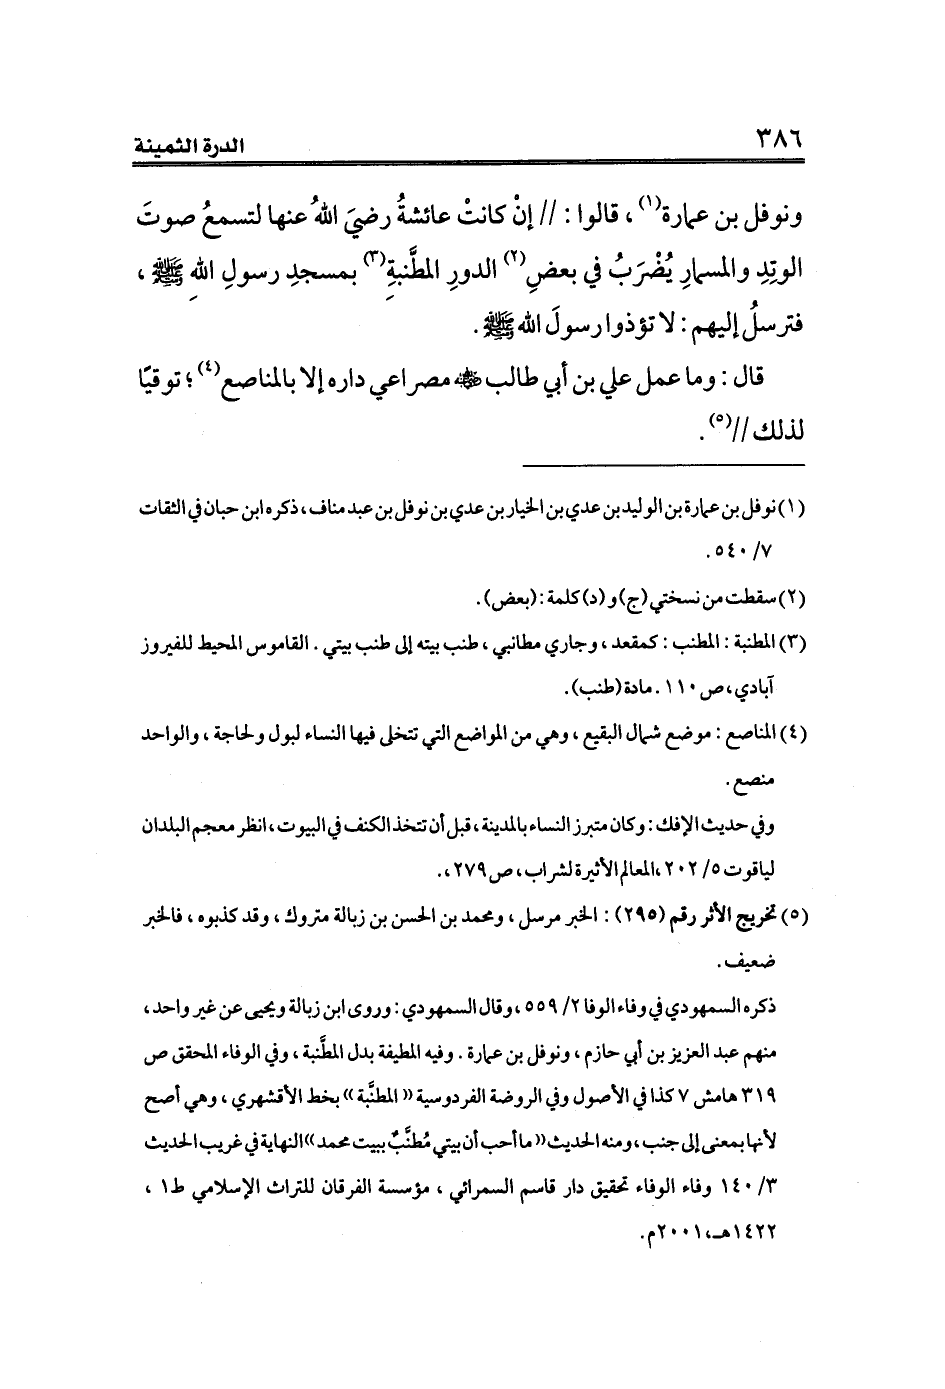 ٣٨٦ الدرة الثمينة
ونوفل بن عمارة(١) ، قالوا : // إنْ كانتْ عائشةُ رضيَ اللهُ عنها لتسمعُ صوتَ
الوتِدِ والمسمارِ يُضْرَبُ في بعضِ(٢) الدورِ المطَّنبةِ(٣) بمسجدِ رسولِ اللهِ ﷺ ،
فترسلُ إليهم : لا تؤذوا رسولَ الله ﷺ .
قال : وما عمل علي بن أبي طالب ؓ مصراعي داره إلا بالمناصع(٤) ؛ توقيًا
لذلك //(٥) .
(١) نوفل بن عمارة بن الوليد بن عدي بن الخيار بن عدي بن نوفل بن عبد مناف ، ذكره ابن حبان في الثقات
٧/ ٥٤٠ .
(٢) سقطت من نسختي (ج) و (د) كلمة : (بعض) .
(٣) المطنبة : المطنب : كمقعد ، وجاري مطانبي ، طنب بيته إلى طنب بيتي . القاموس المحيط للفيروز
آبادي ، ص ١١٠ . مادة (طنب) .
(٤) المناصع : موضع شمال البقيع ، وهي من المواضع التي تتخلى فيها النساء لبول ولحاجة ، والواحد
منصع .
وفي حديث الإفك : وكان متبرز النساء بالمدينة ، قبل أن تتخذ الكنف في البيوت ، انظر معجم البلدان
لياقوت ٥/ ٢٠٢ ، المعالم الأثيرة لشراب ، ص ٢٧٩ ، .
(٥) تخريج الأثر رقم (٢٩٥) : الخبر مرسل ، ومحمد بن الحسن بن زبالة متروك ، وقد كذبوه ، فالخبر
ضعيف .
ذكره السمهودي في وفاء الوفا ٢/ ٥٥٩ ، وقال السمهودي : وروى ابن زبالة ويحيى عن غير واحد ،
منهم عبد العزيز بن أبي حازم ، ونوفل بن عمارة . وفيه المطيفة بدل المطَّنبة ، وفي الوفاء المحقق ص
٣١٩ هامش ٧ كذا في الأصول وفي الروضة الفردوسية « المطنَّبة » بخط الأقشهري ، وهي أصح
لأنها بمعنى إلى جنب ، ومنه الحديث « ما أحب أن بيتي مُطنَّبٌ ببيت محمد » النهاية في غريب الحديث
٣/ ١٤٠ وفاء الوفاء تحقيق دار قاسم السمرائي ، مؤسسة الفرقان للتراث الإسلامي ط١ ،
١٤٢٢هـ، ٢٠٠١م .